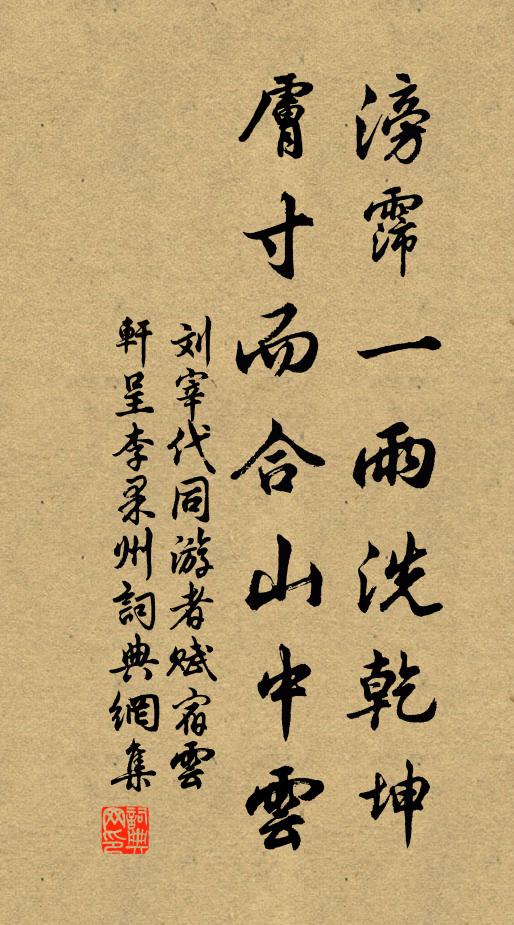 滂霈一雨洗乾坤
膚寸而合山中雲
刘宰代同游者赋宿雲
軒呈李果州詞典網集
詞典網印